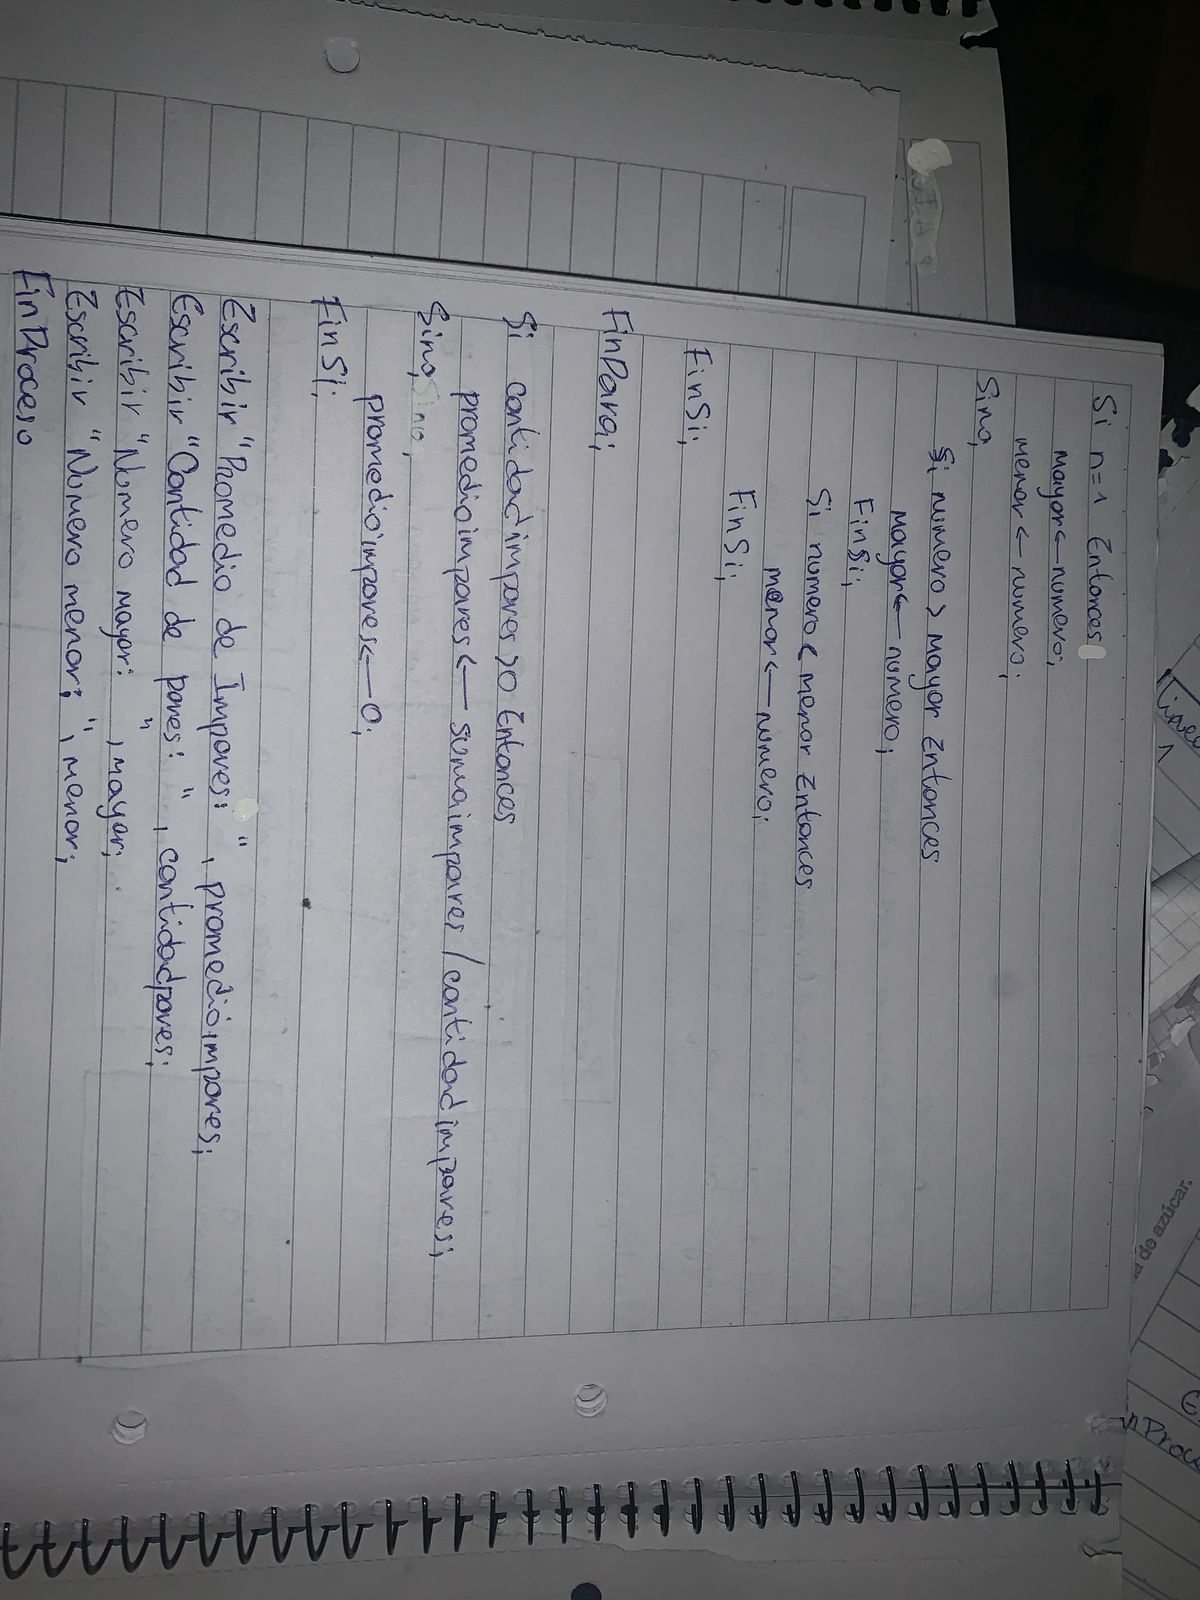 Si n=1 Entonces
mayor<—numero;
menor<—numero;
Sino,
Si numero > mayor Entonces
mayor<—numero;
FinSi;
Si numero < menor Entonces
menor<—numero;
FinSi;
FinSi;
FinPara;
Si contidadimpares >0 Entonces
promedioimpares<— sumaimpares / contidadimpares;
Sino, Sino,
promedioimpares<—0;
FinSi;
Escribir "Promedio de Impares: ", promedioimpares;
Escribir "Contidad de pares: ", contidadpares;
Escribir "Numero mayor: ", mayor;
Escribir "Numero menor: ", menor;
FinProceso
1
de azúcar.
nProce